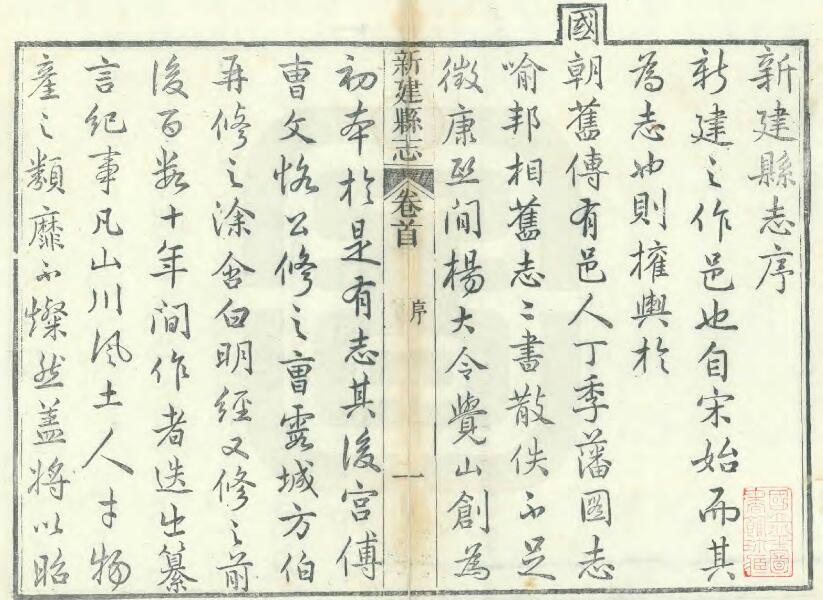 新建縣志序
新建之作邑也自宋始而其
為志也則擁輿於
國朝舊傳有邑人丁季藩圖志
喻邦相舊志二書散佚不足
徵康熙間楊大令覺山創為
新建縣志 卷首 序 一
初本於是有志其後宮傅
曹文恪公修之曹露城方伯
再修之涂含白明經又修之前
後百數十年間作者迭出纂
言紀事凡山川風土人才物
產之類靡不燦然蓋將以昭